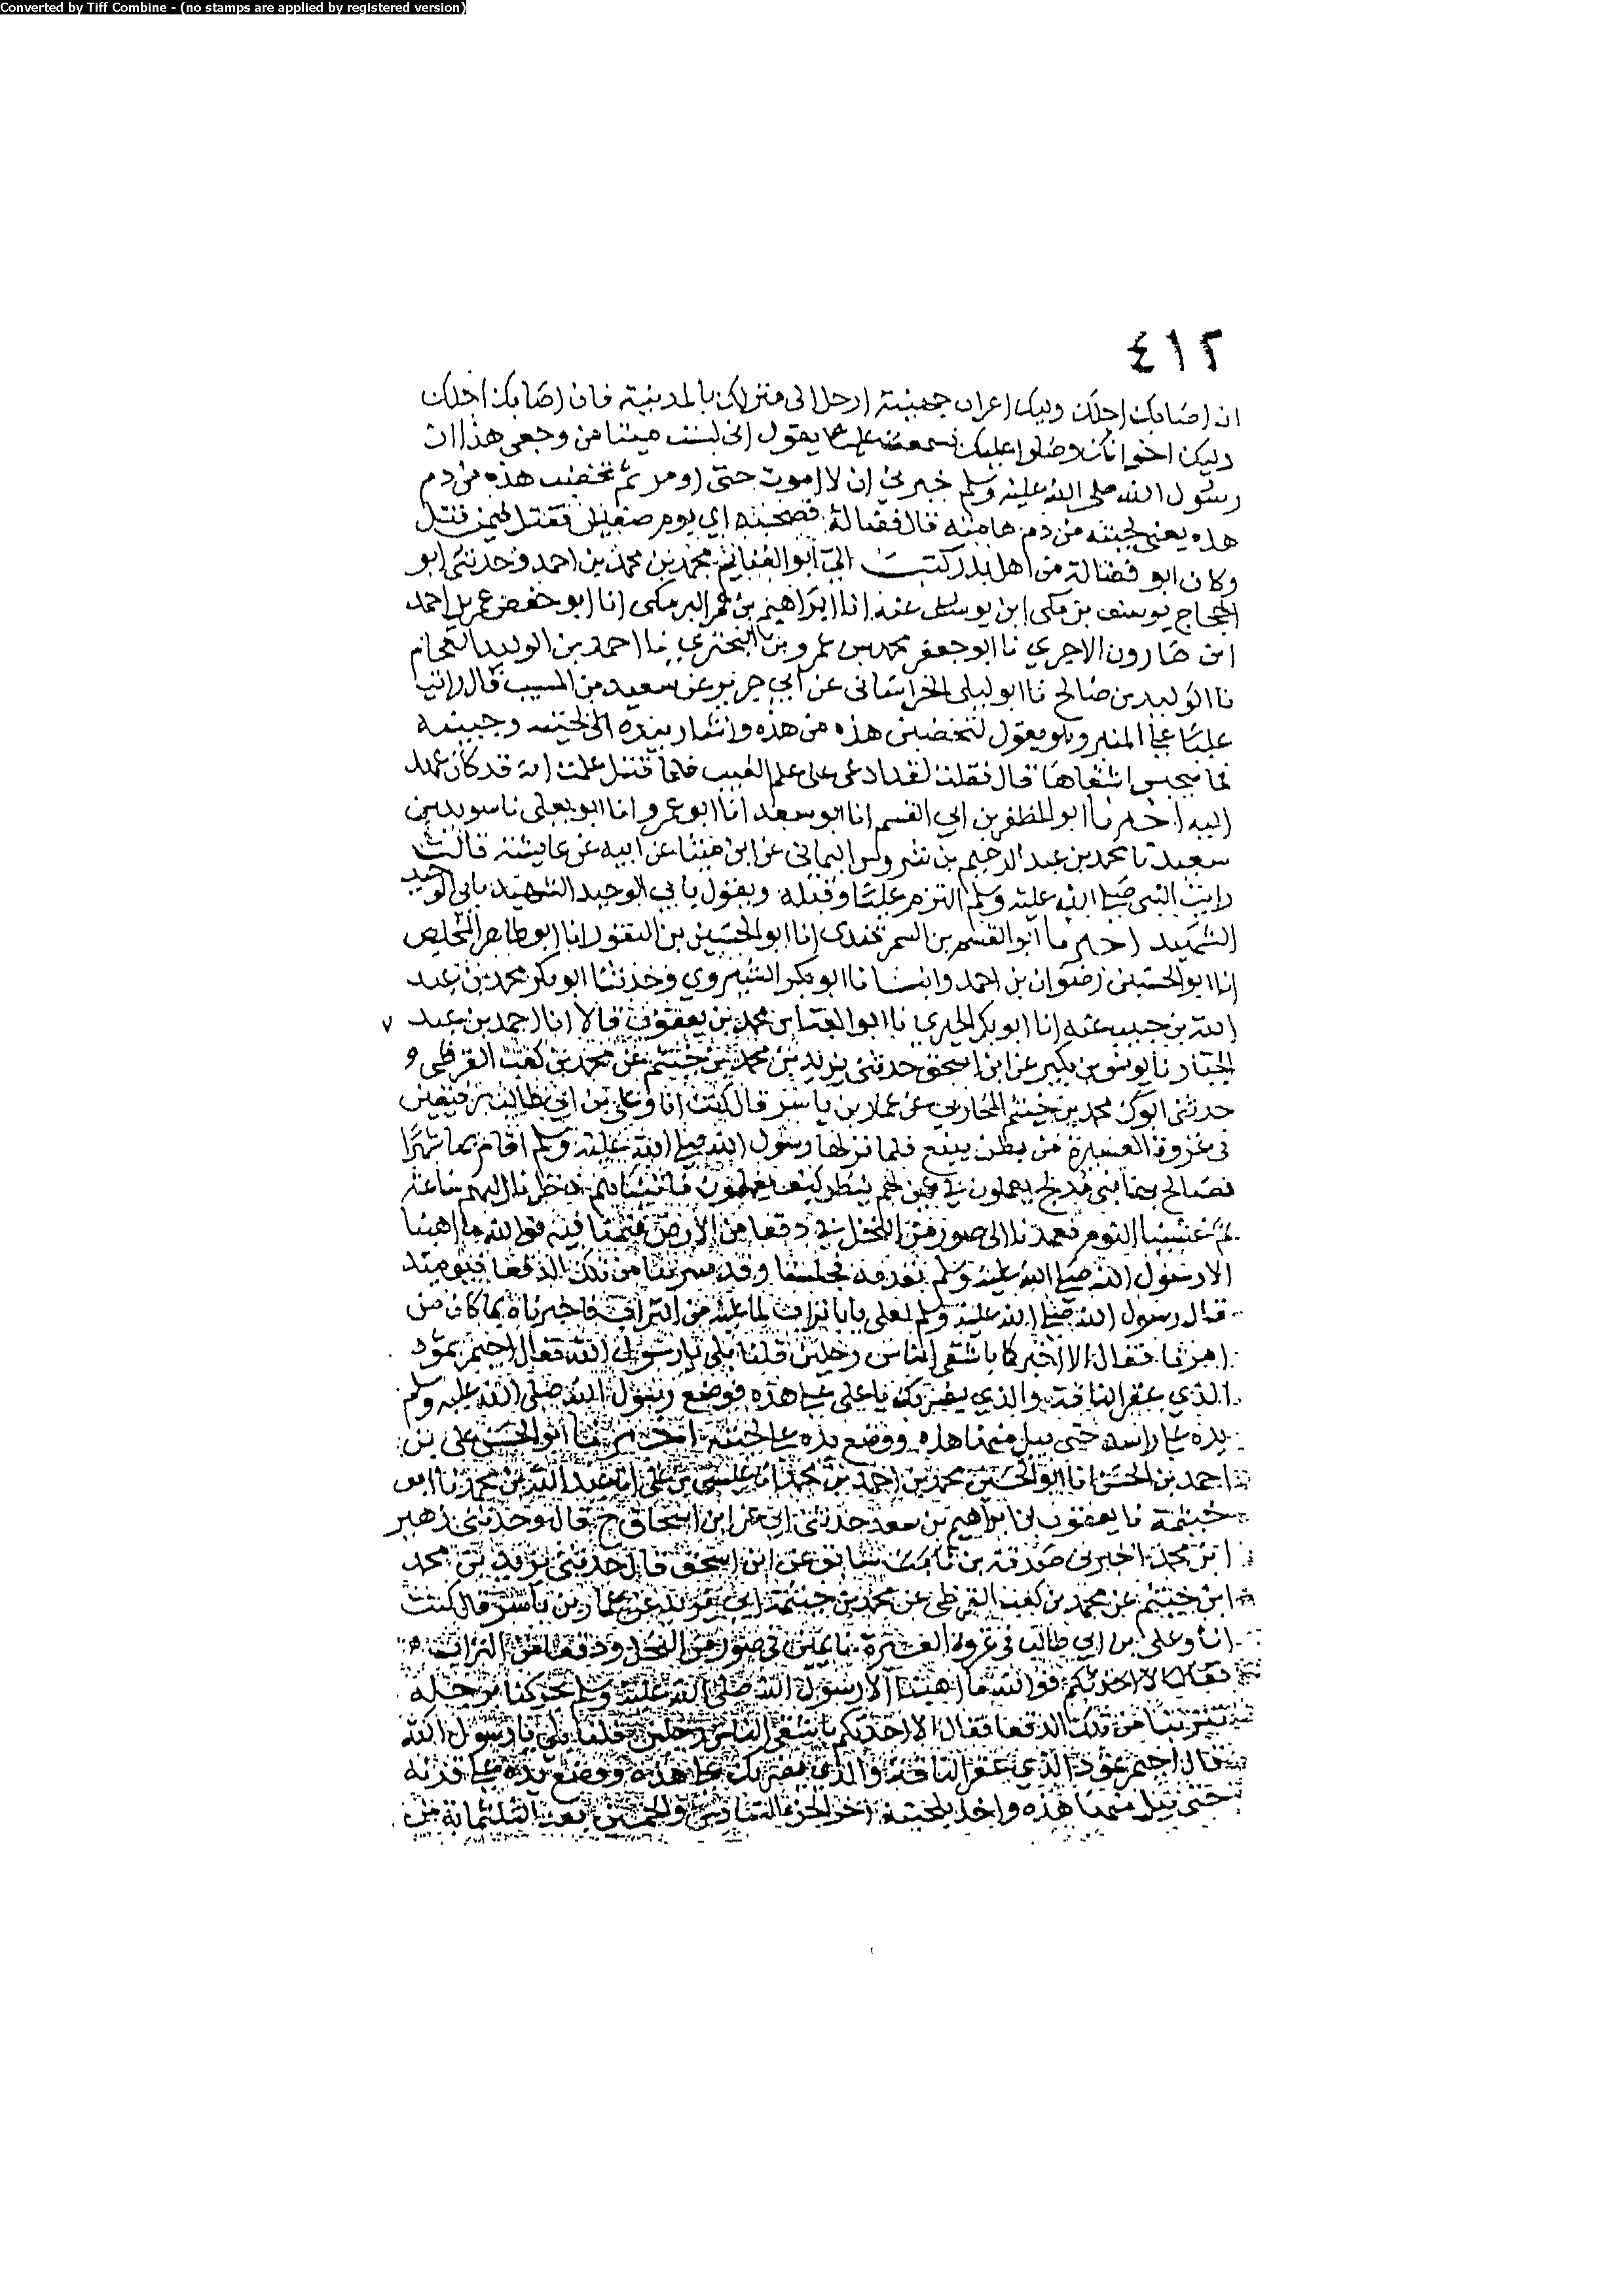 Converted by Tiff Combine - (no stamps are applied by registered version)
٤١٢
ان اصابك اجلك وليك اعراب جهينة ارحل الى منزلك بالمدينة فان اصابك اجلك
وليك اخوانك وصلوا عليك فسمعت عليا يقول اني لست ميتا من وجعي هذا ان
رسول الله صلى الله عليه وسلم خبرني ان لا اموت حتى اومر ثم تخضب هذه من دم
هذه يعني لحيته من دم هامته قال فضالة فصحبه ابي يوم صفين فقتل فيمن قتل
وكان ابو فضالة من اهل بدر كتب الي ابو الغنايم محمد بن محمد بن احمد وحدثني ابو
الحجاج يوسف بن مكي بن يوسف عنه انا ابراهيم بن عمر البرمكي انا ابو حفص عمر بن احمد
ابن هارون الاجري نا ابو جعفر محمد بن عمرو بن البختري نا احمد بن الوليد الفحام
نا الوليد بن صالح نا ابو ليلى الخراساني عن ابي جرير عن سعيد بن المسيب قال رايت
عليا على المنبر وهو يقول لتخضبن هذه من هذه واشار بيده الى لحيته وجبينه
فما يحبس اشقاها قال فقلت لقد ادعى علي علم الغيب فلما قتل علمت انه قد كان عهد
اليه اخبرنا ابو المظفر بن ابي القسم انا ابو سعد انا ابو عمرو انا ابو يعلى نا سويد بن
سعيد نا محمد بن عبد الرحيم بن شروس اليماني عن ابن مينا عن ابيه عن عايشة قالت
رايت النبي صلى الله عليه وسلم التزم عليا وقبله ويقول بابي الوحيد الشهيد بابي الوحيد
الشهيد اخبرنا ابو القسم بن السمرقندي انا ابو الحسين بن النقور انا ابو طاهر المخلص
انا ابو الحسين رضوان بن احمد وانبانا ابو بكر الشيروي وحدثنا ابو بكر محمد بن عبد
الله بن حبيب عنه انا ابو بكر الحيري نا ابو العباس محمد بن يعقوب قالا انا احمد بن عبد ٧
الجبار نا يونس بن بكير عن ابن اسحق حدثني يزيد بن محمد بن خيثم عن محمد بن كعب القرظي و
حدثني ابوك محمد بن خيثم المحاربي عن عمار بن ياسر قال كنت انا وعلي بن ابي طالب رفيقين
في غزوة العشيرة من بطن ينبع فلما نزلها رسول الله صلى الله عليه وسلم اقام بها شهرا
فصالح بها بني مدلج يعملون في عين لهم ننظر كيف يعملون فاتيناهم فنظرنا اليهم ساعة
ثم غشينا النوم فعمدنا الى صور من النخل في دقعا من الارض فنمنا فيه فوالله ما اهبنا
الا رسول الله صلى الله عليه وسلم بقدمه فجلسنا وقد تتربنا من تلك الدقعا فيومئذ
قال رسول الله صلى الله عليه وسلم لعلي يا با تراب لما عليه من التراب فاخبرناه بما كان من
امرنا فقال الا اخبركما باشقى الناس رجلين قلنا بلى يا رسول الله فقال احيمر ثمود
الذي عقر الناقة والذي يضربك يا علي على هذه فوضع رسول الله صلى الله عليه وسلم
يده على راسه حتى يبل منها هذه ووضع يده على لحيته اخبرنا ابو الحسن علي بن
احمد بن الحسن انا ابو الحسين محمد بن احمد بن محمد انا عيسى بن علي انا عبد الله بن محمد نا ابن
خيثمة نا يعقوب بن ابراهيم بن سعد حدثني ابي عن ابن اسحاق ح قال وحدثني زهير
ابن محمد اخبرني صدقة بن سابق عن ابن اسحق قال حدثني يزيد بن محمد
ابن خيثم عن محمد بن كعب القرظي عن محمد بن خيثمة ابي يزيد عن عمار بن ياسر قال كنت
انا وعلي بن ابي طالب في غزوة العشيرة نايمين في صور من النخل ودقعا من التراب
فقال الا احدثكم فوالله ما اهبنا الا رسول الله صلى الله عليه وسلم يحركنا برجله
تتربنا من تلك الدقعا فقال الا احدثكم باشقى الناس رجلين قلنا بلى يا رسول الله
قال احيمر ثمود الذي عقر الناقة والذي يضربك على هذه ووضع يده على قرنه
حتى يبل منها هذه واخذ بلحيته اخر الجزء السادس والخمسين بعد الثلثمائة من